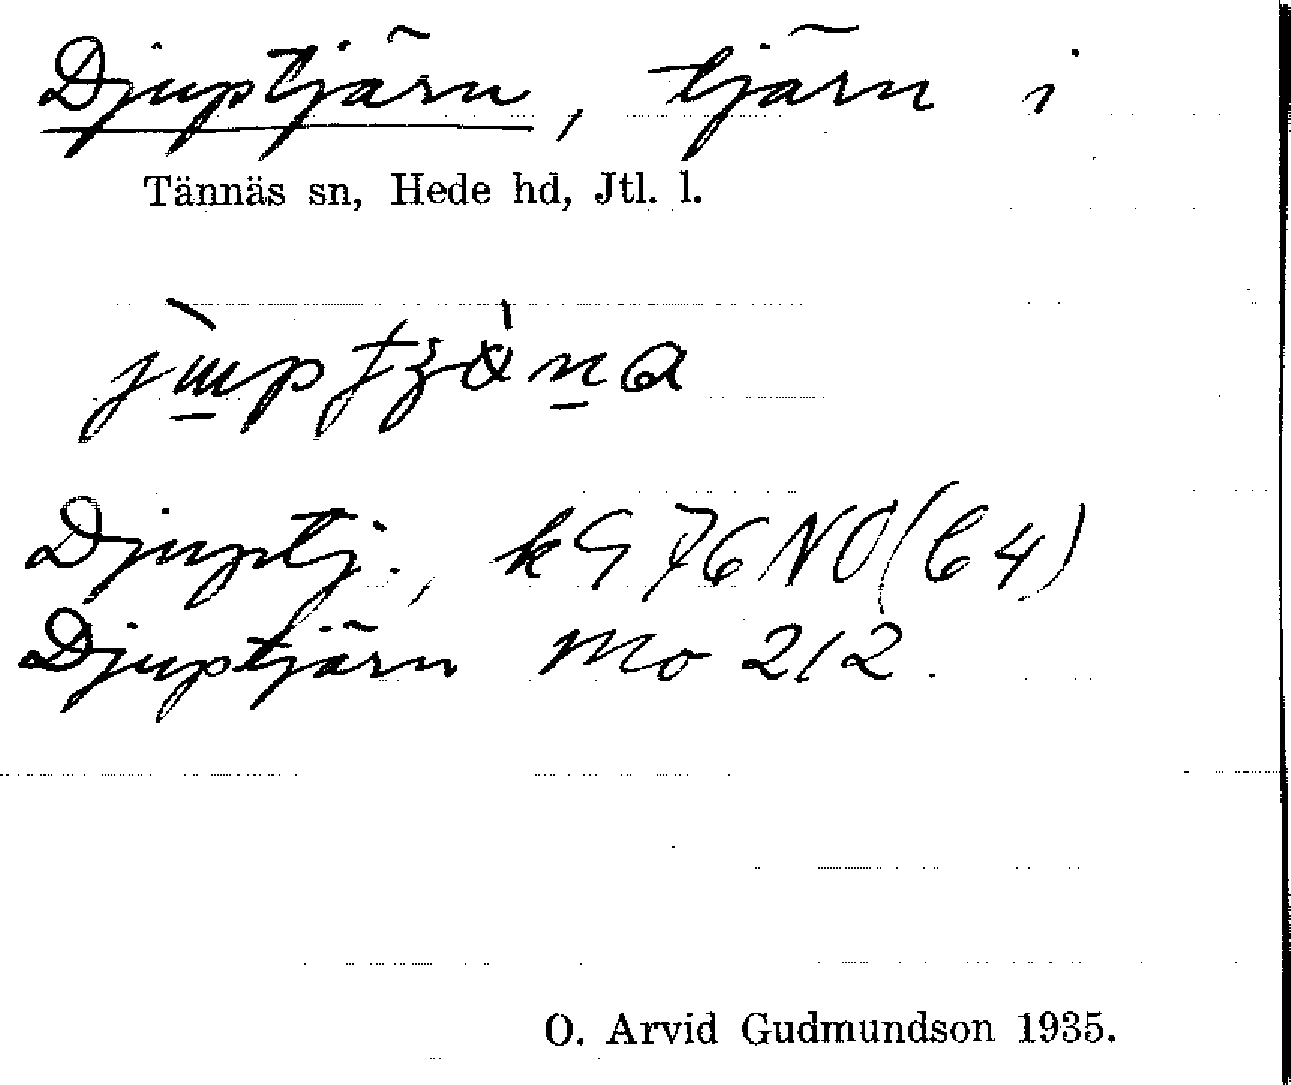 Djuptjärn, tjärn i
Tännäs sn, Hede hd, Jtl. l.
Djuptj., kG 76 NO (C4)
Djuptjärn Mo 212.
O. Arvid Gudmundson 1935.